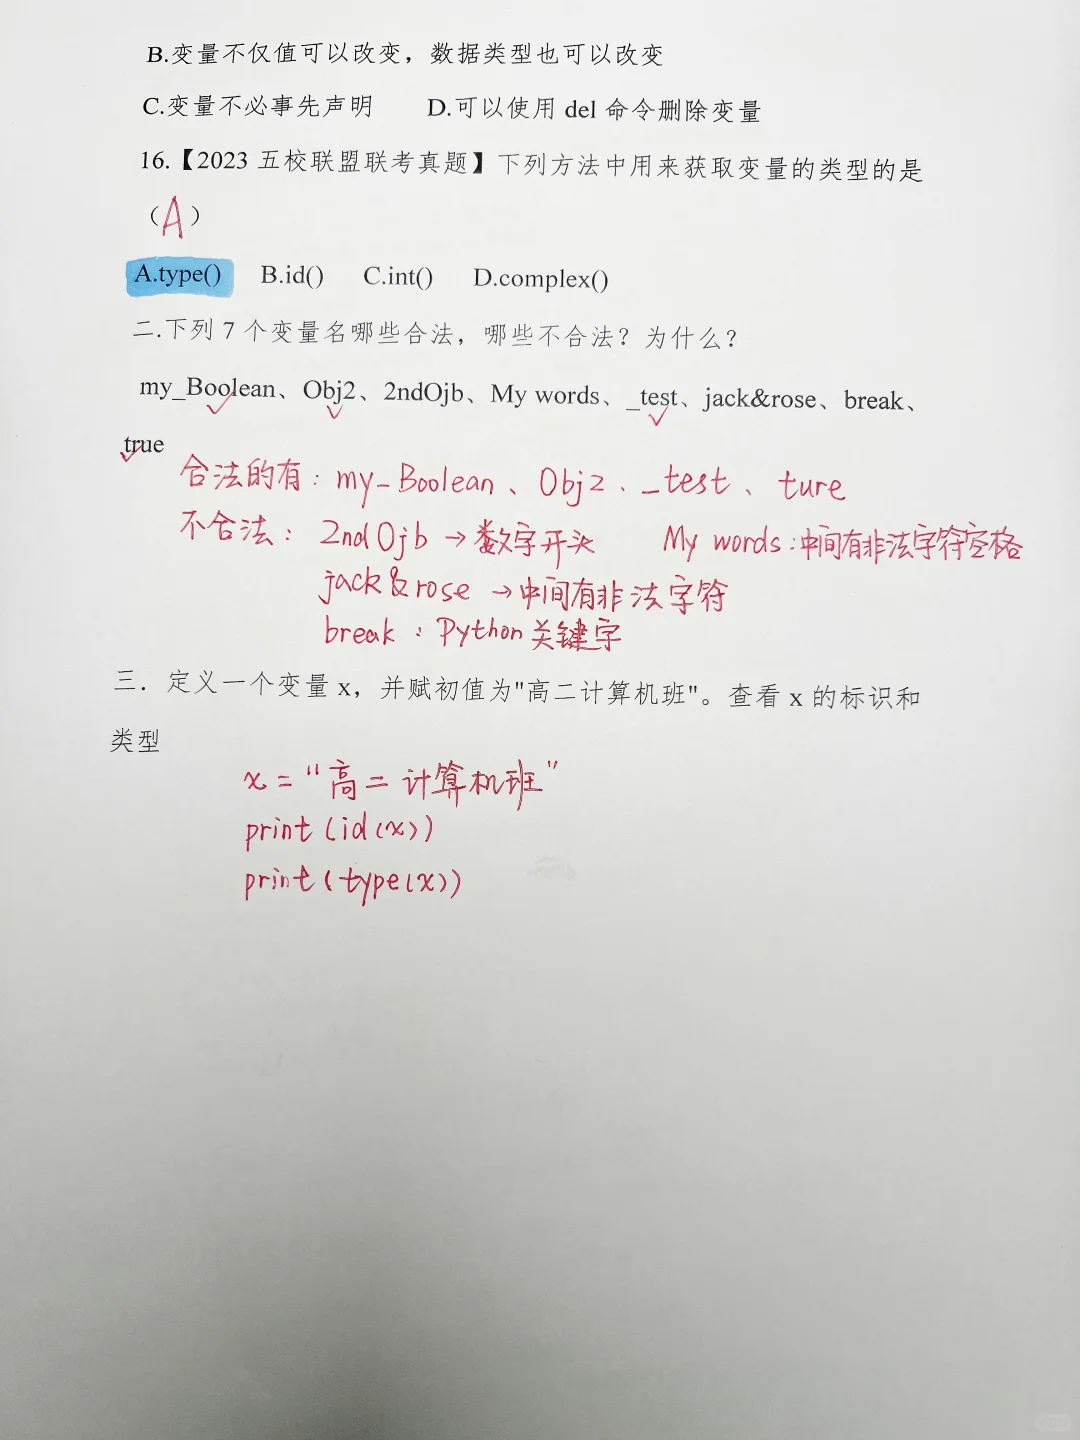 B.变量不仅值可以改变，数据类型也可以改变
C.变量不必事先声明 D.可以使用 del 命令删除变量
16.【2023 五校联盟联考真题】下列方法中用来获取变量的类型的是
（A）
A.type() B.id() C.int() D.complex()
二.下列 7 个变量名哪些合法，哪些不合法？为什么？
my_Boolean、Obj2、2ndOjb、My words、_test、jack&rose、break、
true
合法的有：my_Boolean、Obj2、_test、ture
不合法：2ndOjb→数字开头 My words:中间有非法字符空格
jack&rose→中间有非法字符
break：Python关键字
三．定义一个变量 x，并赋初值为"高二计算机班"。查看 x 的标识和
类型
x="高二计算机班"
print(id(x))
print(type(x))